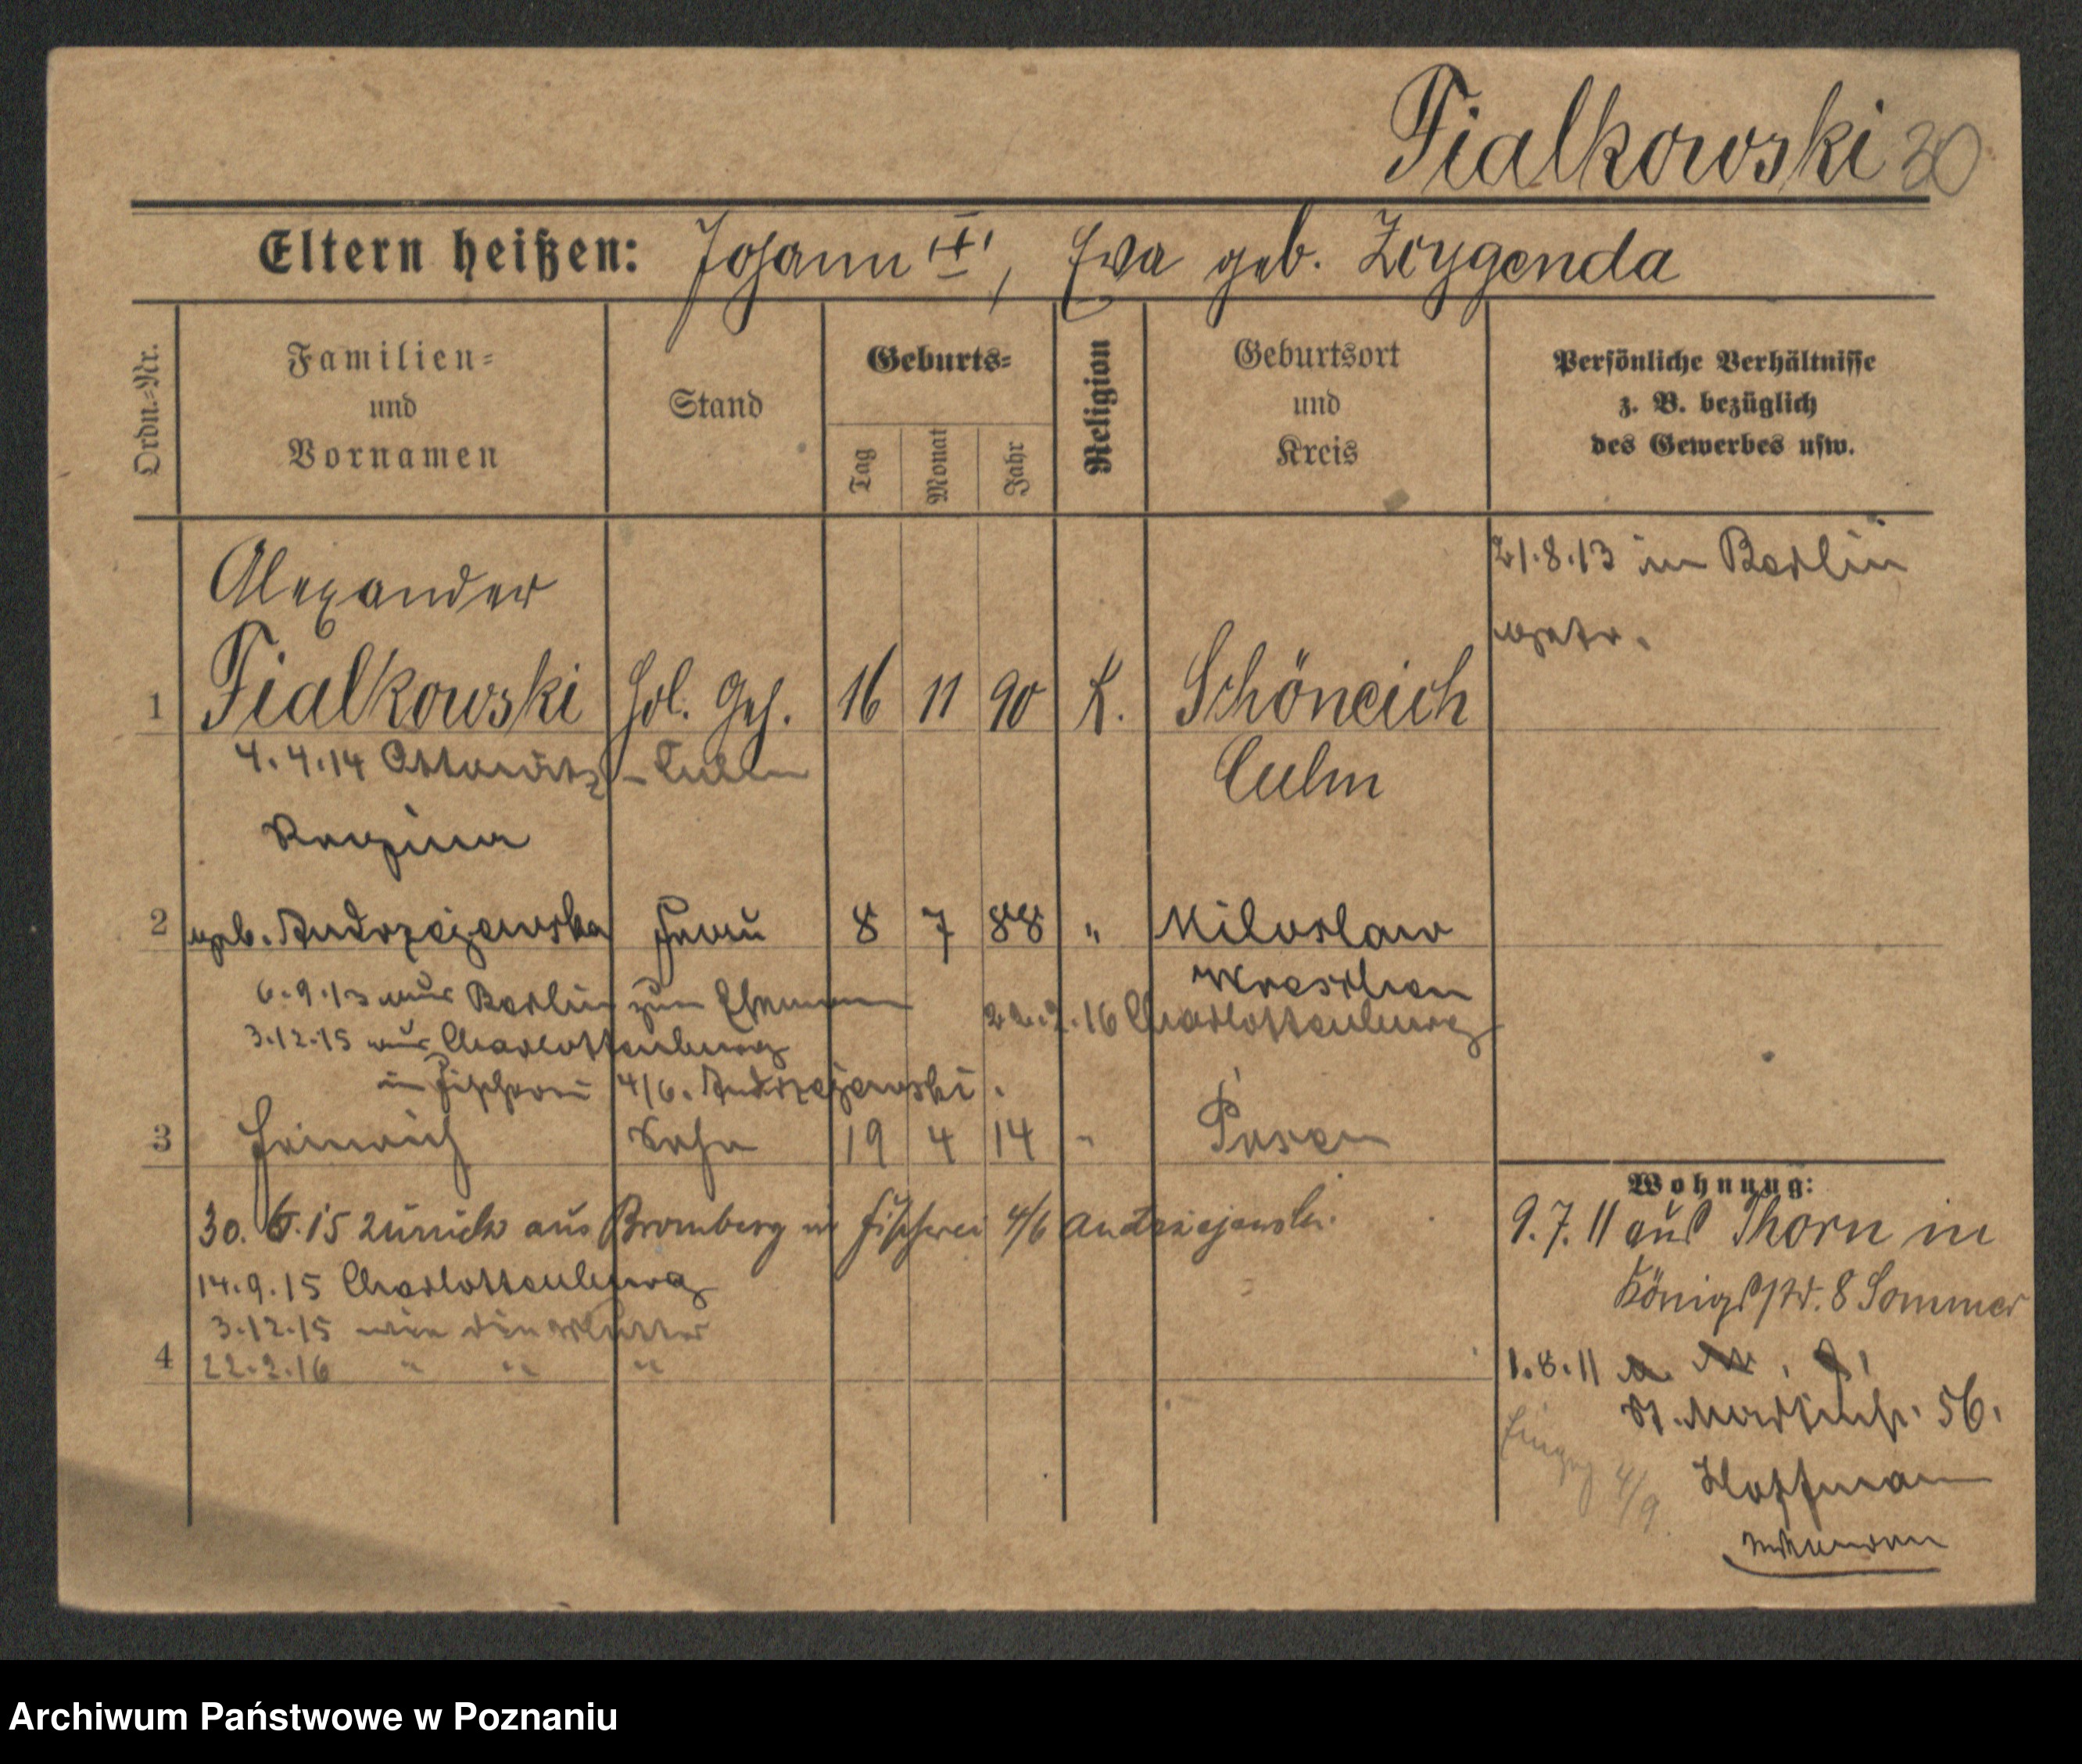 Fialkowski 30
Eltern heißen: Johann "+", Eva geb. Zoygenda
Ordn.-Nr.
Familien-
und
Vornamen
Stand
Geburts-
Tag
Monat
Jahr
Religion
Geburtsort
und
Kreis
Persönliche Verhältnisse
z. B. bezüglich
des Gewerbes usw.
Alexander
21.8.13 in Berlin
1 Fialkowski Hdl. Geh. 16 11 90 K. Schöneich
4.4.14 - Culm
Culm
2 geb. Andrzejewska Frau 8 7 88 " Miloslaw
Wreschen
6.9.13 aus Berlin zum Ehemann
22.2.16 Charlottenburg
3.12.15 aus Charlottenburg
in Fischerei 4/6. Andrzejewski.
3 Heinrich Sohn 19 4 14 " Posen
Wohnung:
30. 6.15 zurück aus Bromberg in Fischerei 4/6 Andrzejewski.
9.7.11 aus Thorn in
14.9.15 Charlottenburg
Königstr. 8 Sommer
3.12.15 wie die Mutter
4 22.2.16 " " "
1.8.11
St. Martinstr. 56.
4/9.
Hoffmann